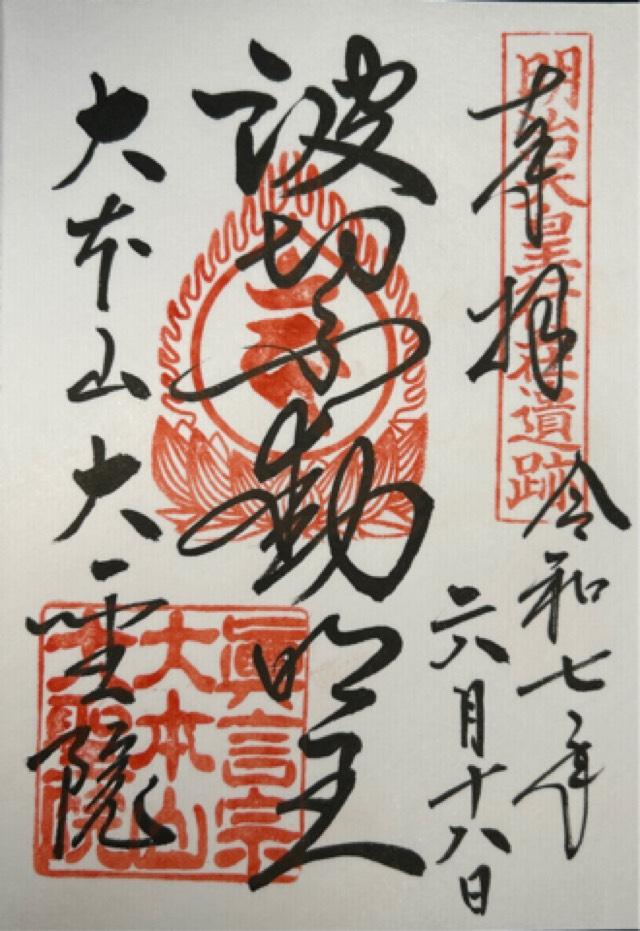 明治天皇行在所遺跡
奉拝
令和七年
六月十八日
波切不動明王
大本山大聖院
眞言宗
大本山
大聖院